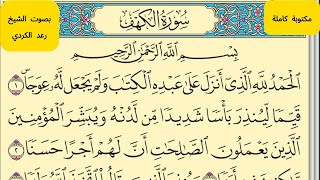 مكتوبة كاملة
سُورَةُ الكَهْفِ
بصوت الشيخ
رعد الكردي
بِسْمِ اللَّهِ الرَّحْمَٰنِ الرَّحِيمِ
الْحَمْدُ لِلَّهِ الَّذِي أَنزَلَ عَلَىٰ عَبْدِهِ الْكِتَابَ وَلَمْ يَجْعَل لَّهُ عِوَجًا ۜ ١
قَيِّمًا لِّيُنذِرَ بَأْسًا شَدِيدًا مِّن لَّدُنْهُ وَيُبَشِّرَ الْمُؤْمِنِينَ
الَّذِينَ يَعْمَلُونَ الصَّالِحَاتِ أَنَّ لَهُمْ أَجْرًا حَسَنًا ٢